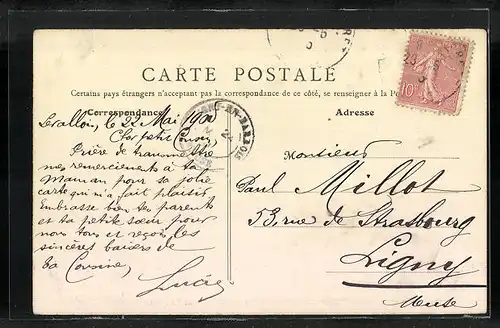 CARTE POSTALE
Certains pays étrangers n'acceptant pas la correspondance de ce côté, se renseigner à la
Correspondance
Adresse
le 22 Mai 190
Cher petit Cousin,
Prière de transmettre
mes remerciements à ta
Maman pour sa jolie
carte qui m'a fait plaisir
Embrasse bien tes parents
et ta petite sœur pour
nous tous et reçois les
sincères baisers de
ta Cousine,
Lucie
Monsieur
Paul Millot
53, rue de Strasbourg
Ligny
Meuse
10